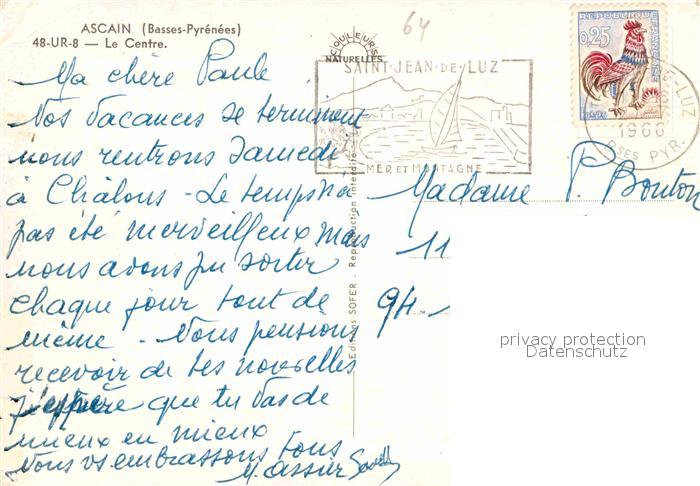 ASCAIN (Basses-Pyrénées)
48-UR-8 — Le Centre.
64
COULEURS
NATURELLES
SAINT-JEAN-DE-LUZ
MER ET MONTAGNE
REPUBLIQUE FRANÇAISE
0,25
1966
BSES PYR.
Editions SOFER. - Reproduction interdite.
Ma chère Paule
Nos vacances se terminent
nous rentrons Samedi
à Châlons - Le temps n'a
pas été merveilleux mais
nous avons pu sortir
chaque jour tout de
même. Nous pensions
recevoir de tes nouvelles
J'espère que tu vas de
mieux en mieux
Nous vs embrassons tous
Madame P. Bouton
11
94 -
privacy protection
Datenschutz